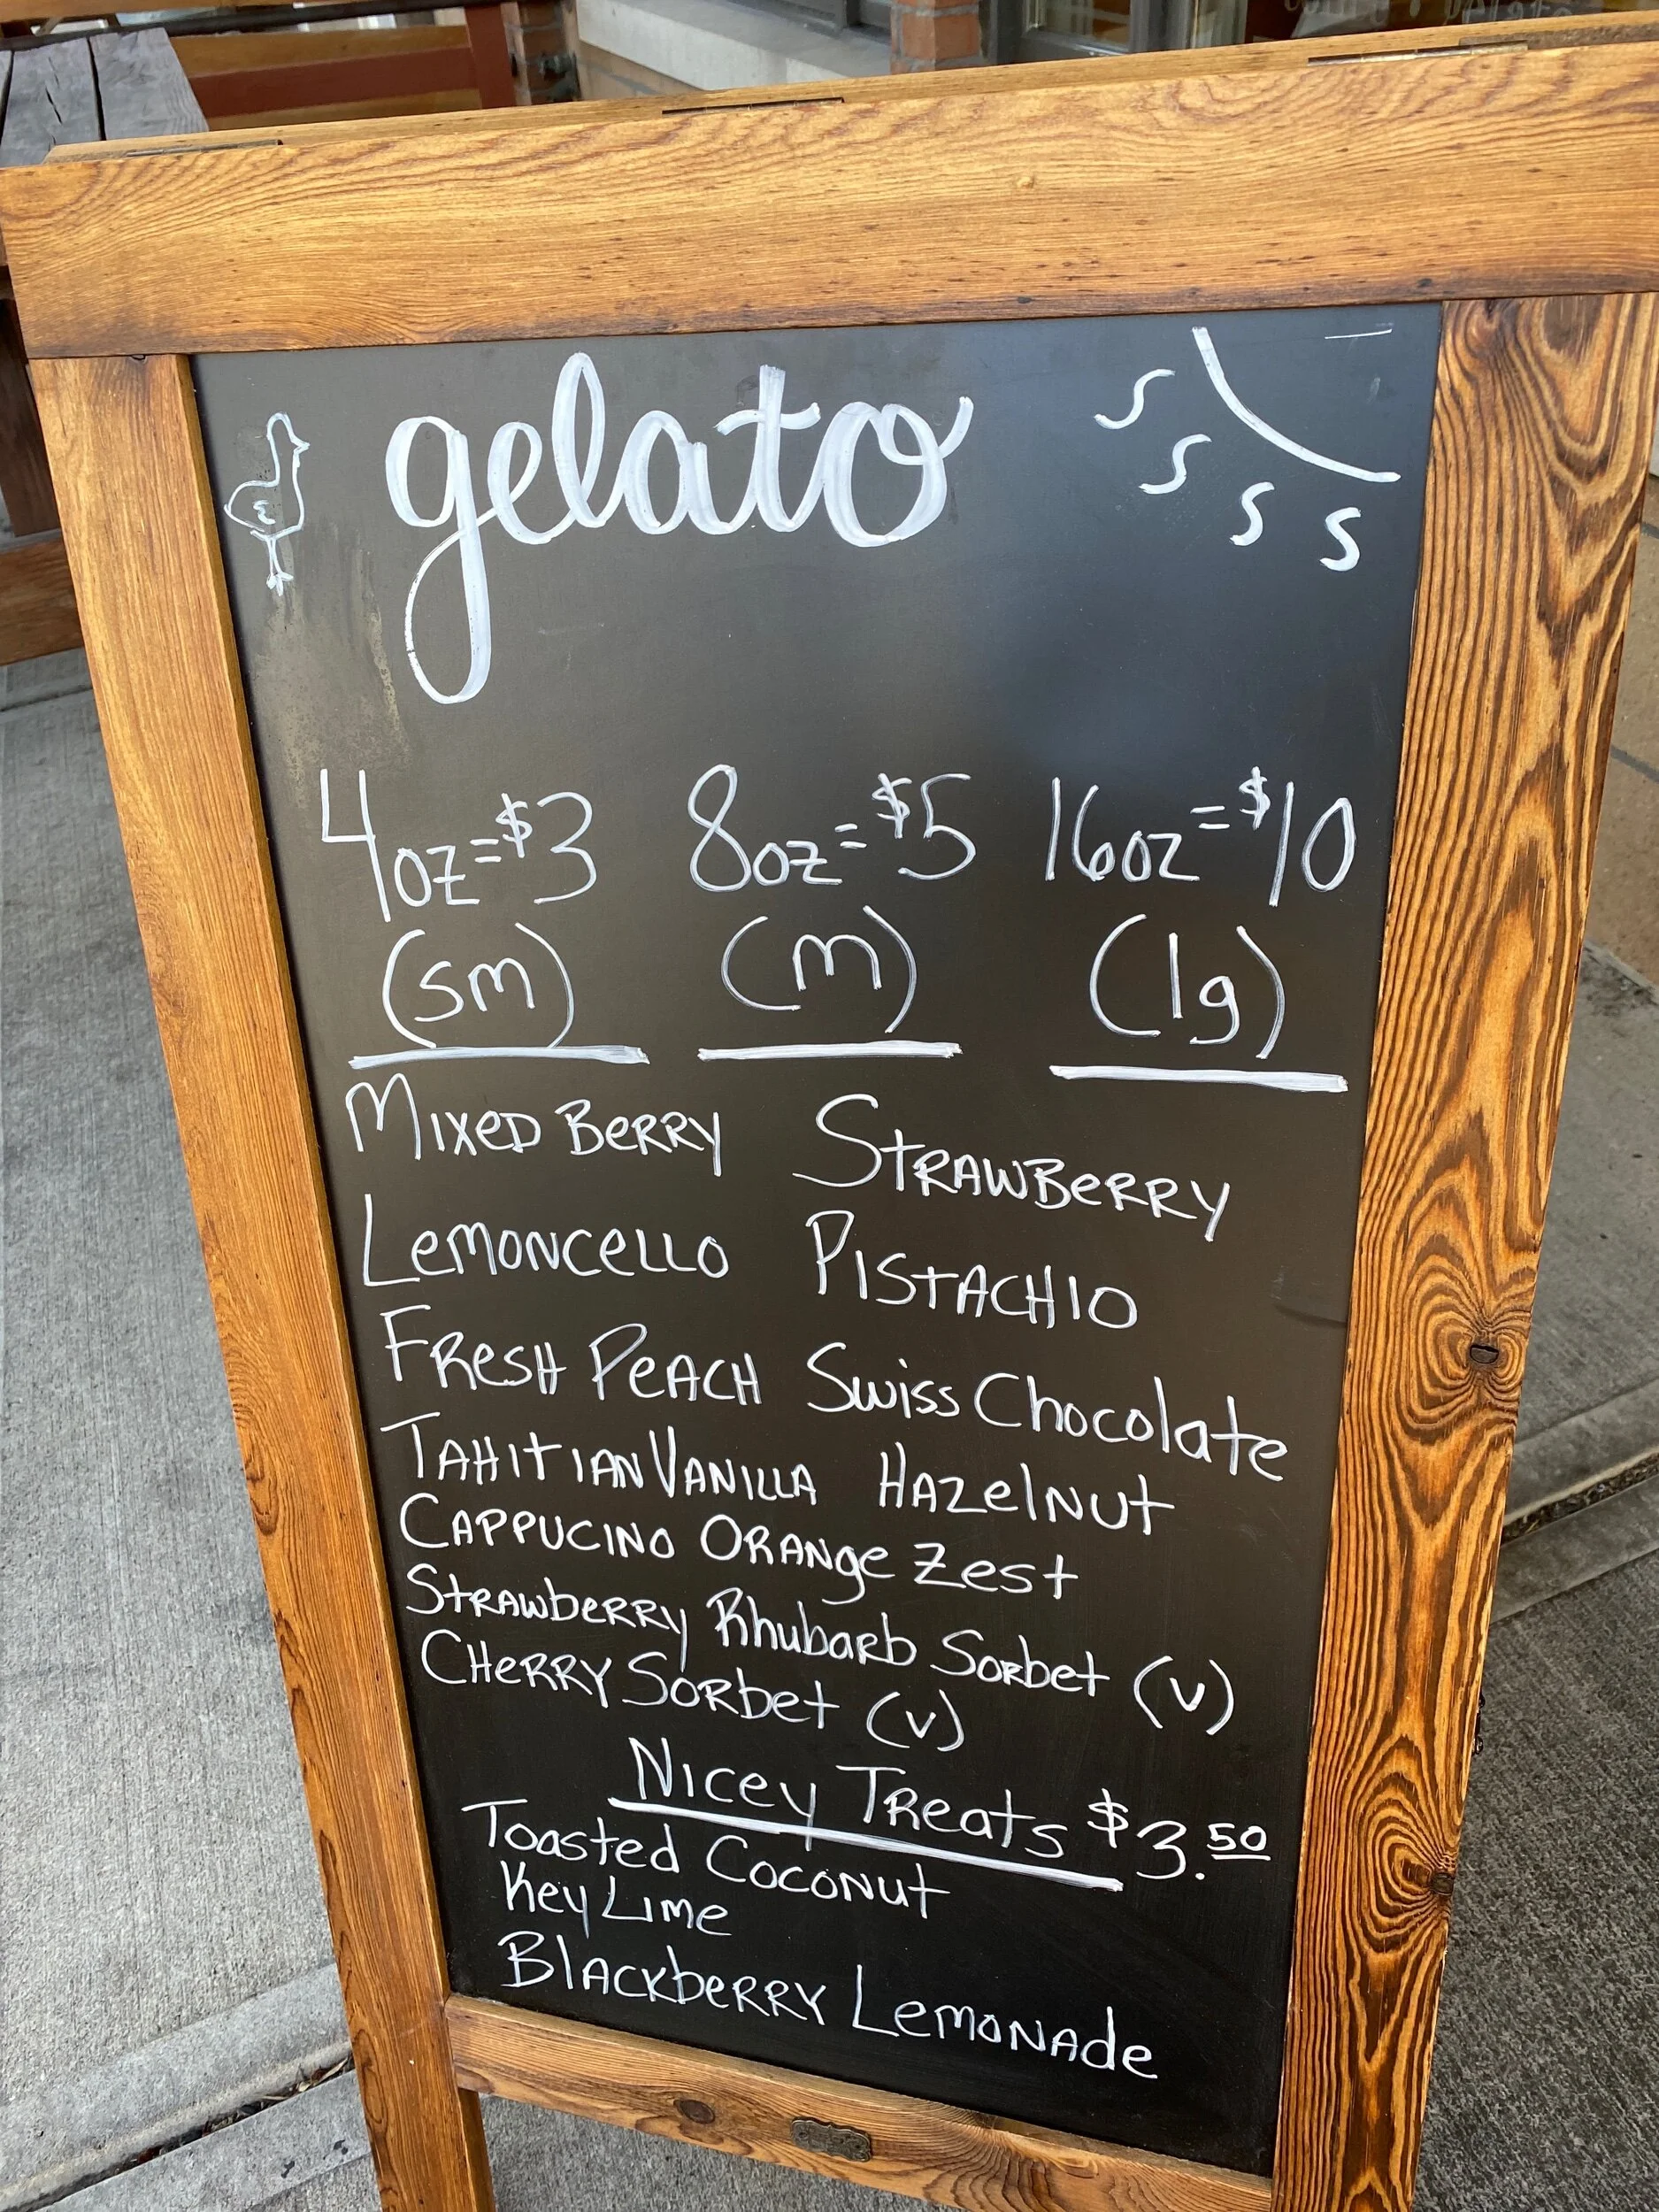 gelato
4oz=$3 8oz=$5 16oz=$10
(sm) (m) (lg)
Mixed Berry Strawberry
Lemoncello Pistachio
Fresh Peach Swiss Chocolate
Tahitian Vanilla Hazelnut
Cappucino Orange Zest
Strawberry Rhubarb Sorbet (v)
Cherry Sorbet (v)
Nicey Treats $3.50
Toasted Coconut
Key Lime
Blackberry Lemonade